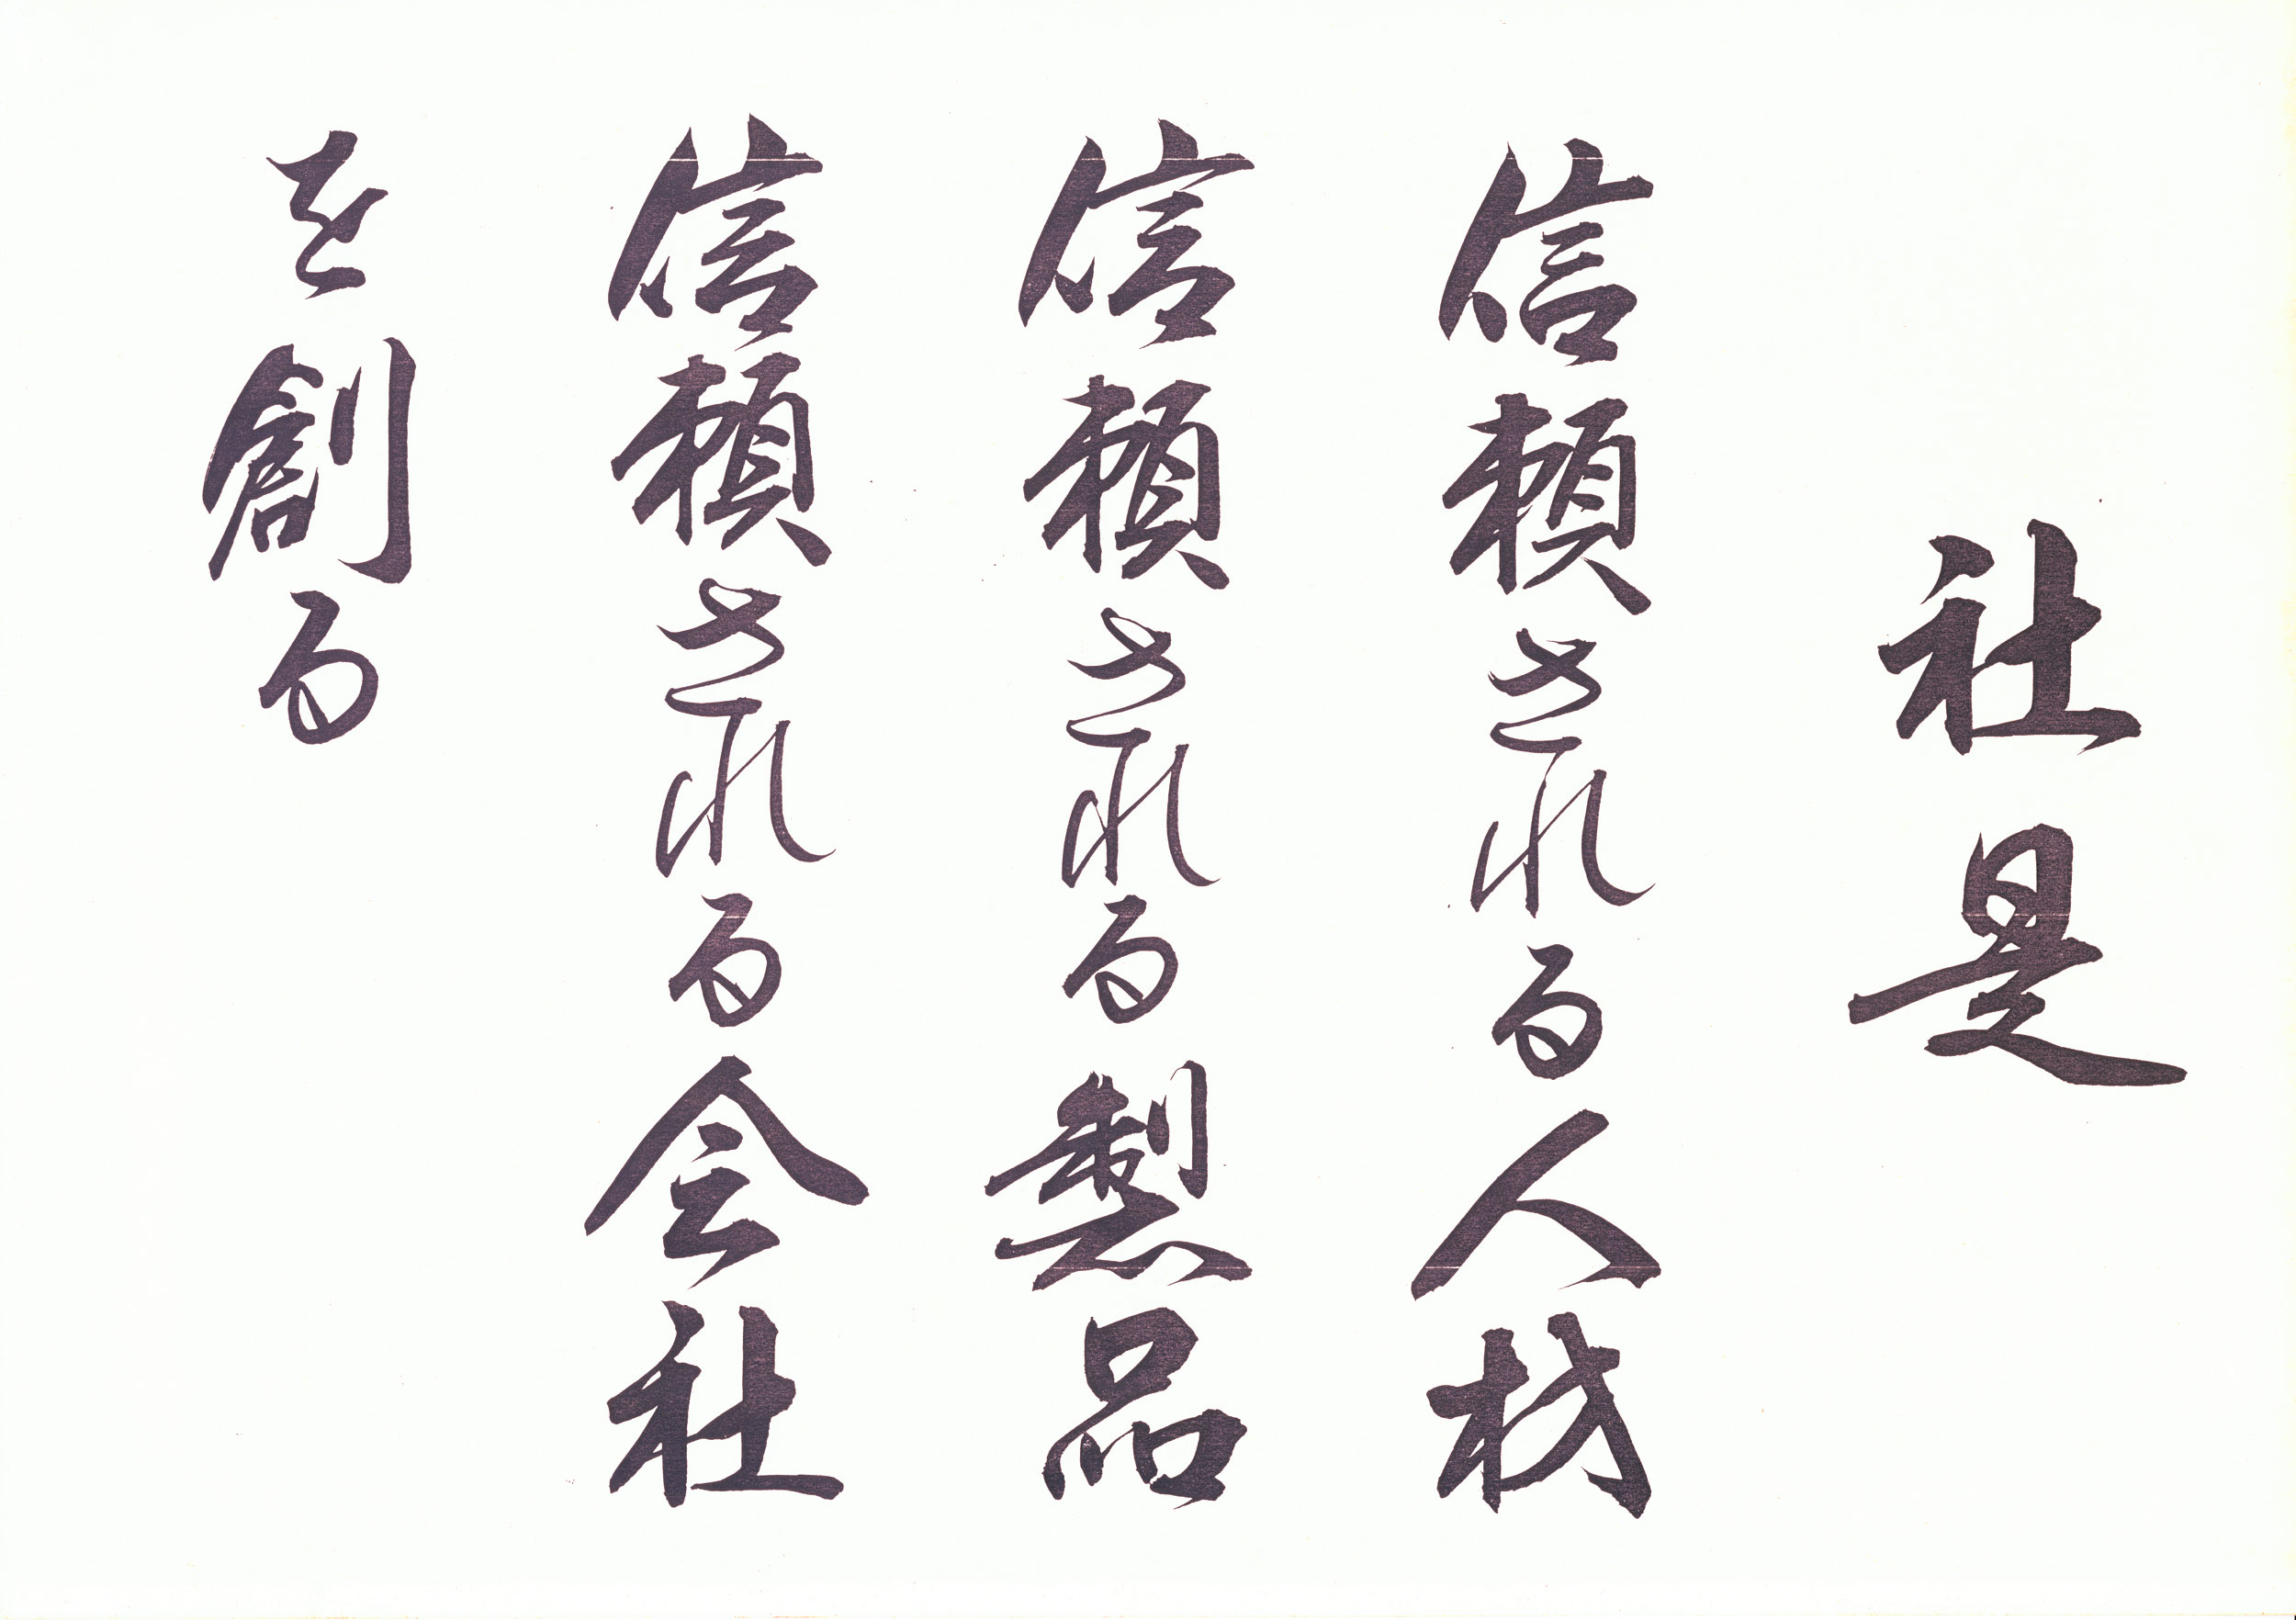 社是
信頼される人材
信頼される製品
信頼される会社
を創る